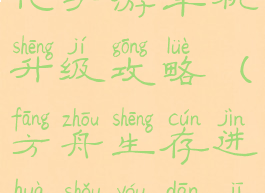 化手游单机
shēng jí gōng lüè
升级攻略（
fāng zhōu shēng cún jìn
方舟生存进
huà shǒu yóu dān jī